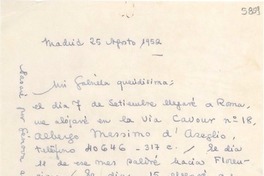 589
Madrid 25 Agosto 1952
Mi Gabriela queridísima:
el día 7 de Setiembre llegaré a Roma,
me alojaré en la Via Cavour nº 18,
Albergo Massimo d'Azeglio,
teléfono 40646-317 c. el día
11 de ese mes saldré hacia Floren-
Pasaré por Génova a